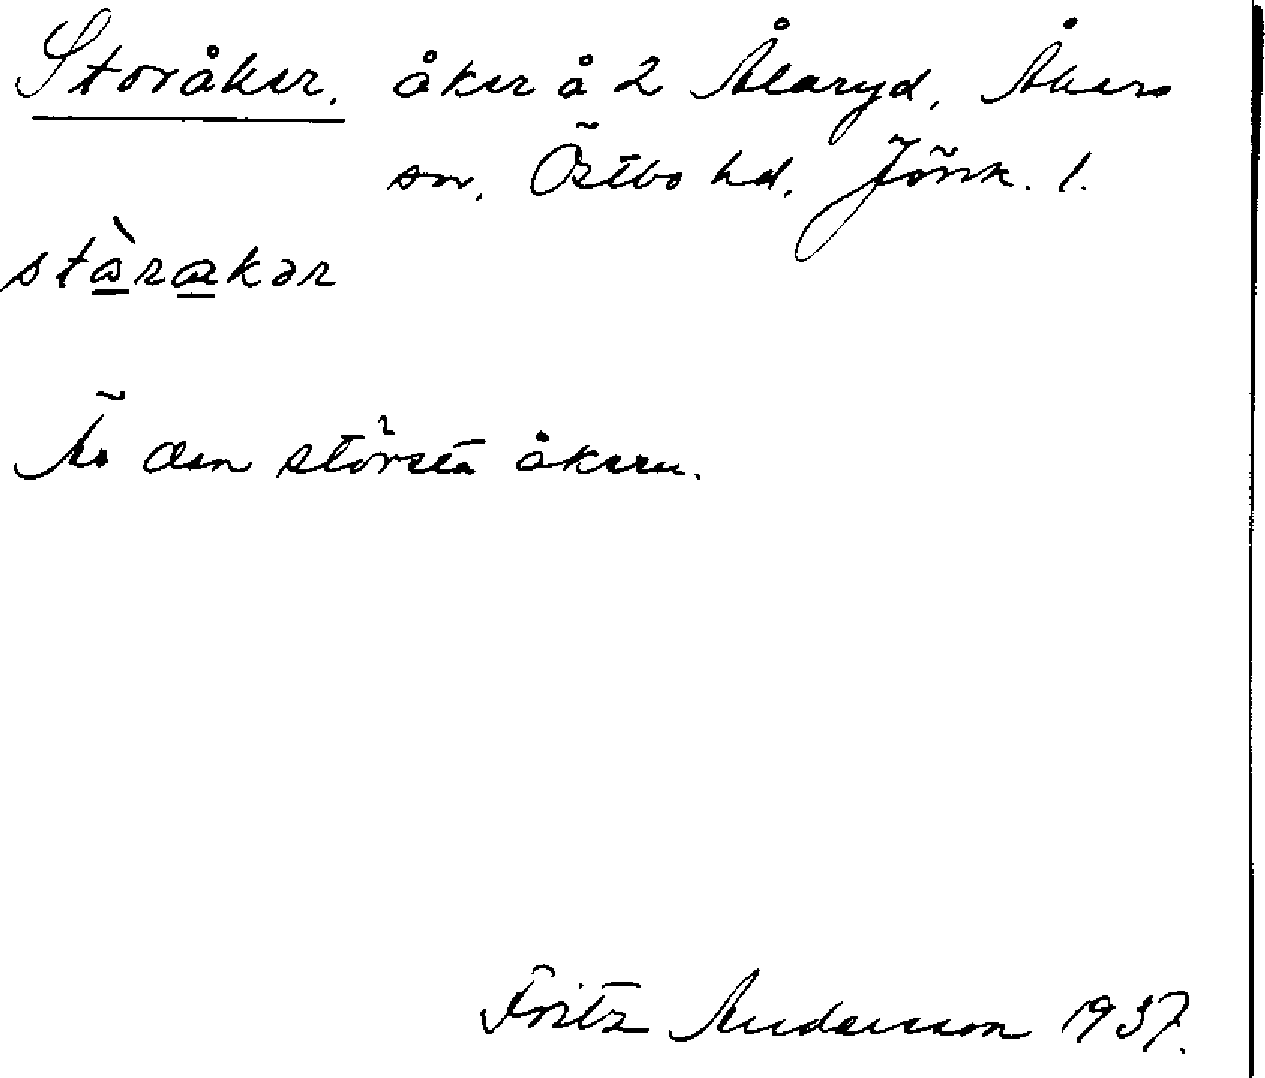 Storåker. åker å 2 Ålaryd, Åkers
sn, Östbo hd. Jönk. l.
stàrakər
Är den största åkern.
Fritz Andersson 1937.